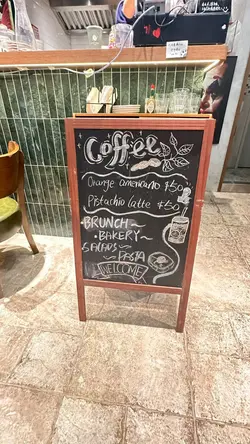 Coffee
Orange americano $50
Pistachio latte $50
BRUNCH ~
• BAKERY ~
SALADS ~
~ PASTA
WELCOME